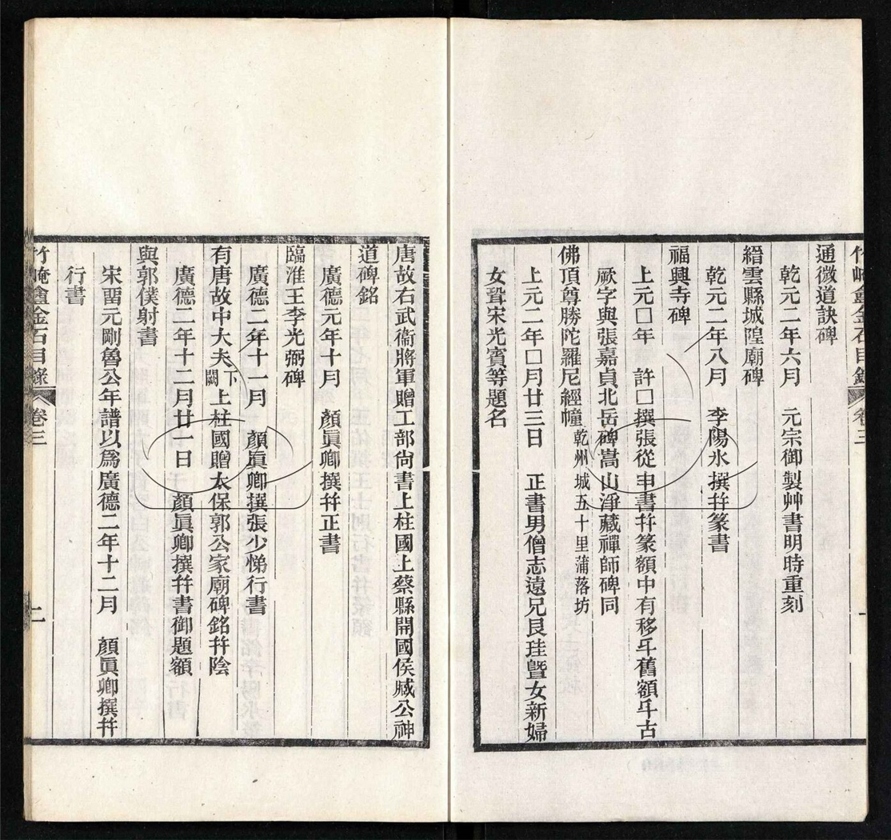 竹崦盦金石目錄 卷三 一
通微道訣碑
乾元二年六月 元宗御製艸書明時重刻
縉雲縣城隍廟碑
乾元二年八月 李陽冰撰幷篆書
福興寺碑
上元□年 許□撰張從申書幷篆額中有移斗舊額斗古
厥字與張嘉貞北岳碑嵩山淨藏禪師碑同
佛頂尊勝陀羅尼經幢 乾州城五十里蒲落坊
上元二年□月廿三日 正書男僧志遠兄良珪曁女新婦
女聟宋光賓等題名
唐故右武衞將軍贈工部尙書上柱國上蔡縣開國侯臧公神
道碑銘
廣德元年十月 顏眞卿撰幷正書
臨淮王李光弼碑
廣德二年十一月 顏眞卿撰張少悌行書
有唐故中大夫下闕上柱國贈太保郭公家廟碑銘幷陰
廣德二年十二月廿一日 顏眞卿撰幷書御題額
與郭僕射書
宋畱元剛魯公年譜以爲廣德二年十二月 顏眞卿撰幷
行書
竹崦盦金石目錄 卷三 二